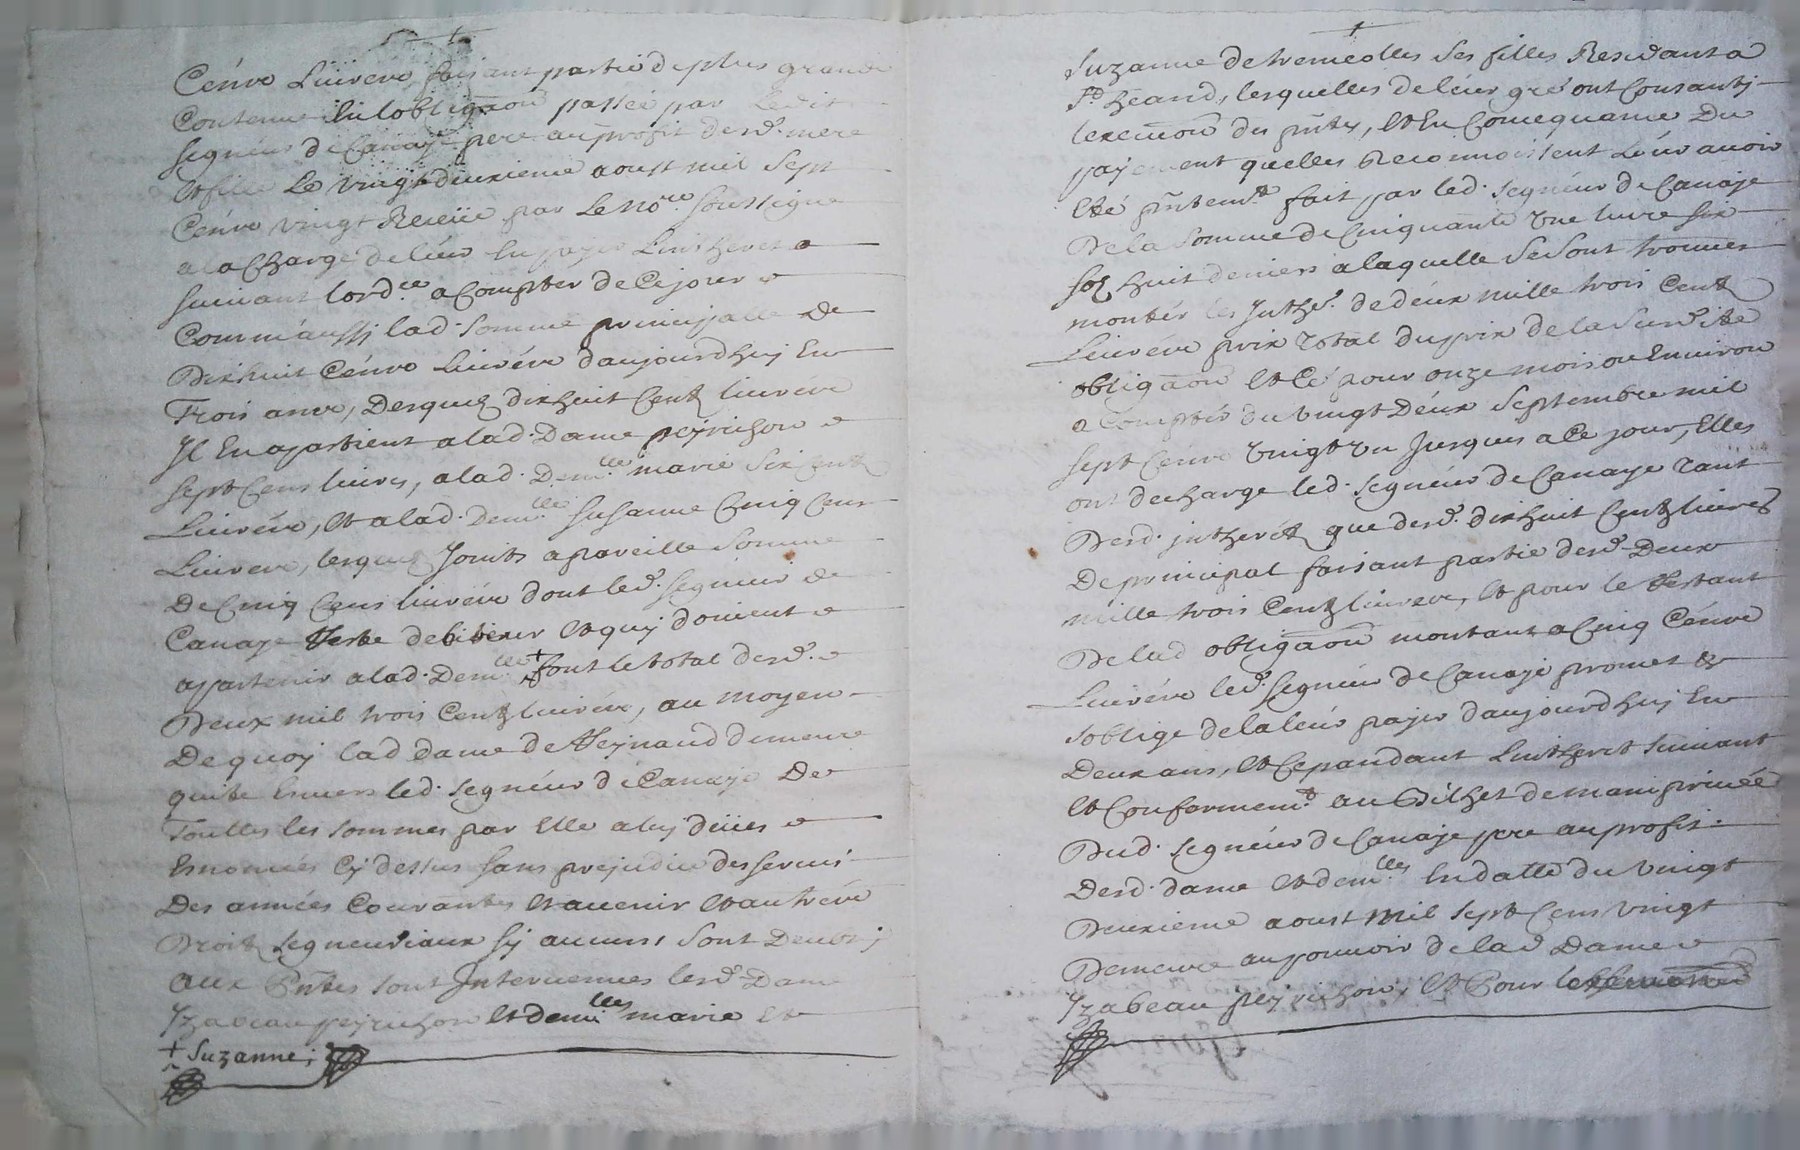 Cenve Liuveve, faisant partie de plus grande
Contenue En lobligaon passée par Ledit
segneur de Canaye pere au profit desd. mere
Et fille Le vingt deuxieme aoust mil sept
Cenve vingt Receüe par Le no.re soussigné
a la Charge de leur En payer Lintheret a
suivant lord.ce a Compter de Ce jour
Comm'aussy lad. somme prinsipalle De
Dix huit Cenve Liuveve d'aujourdhuy En
Trois anve, Desquelz dix huit Centz liuveve
Il En apartient a lad. Dame peyrichon
sept Cens liuves, a lad. Dem.lle marie six Centz
Liuveve, Et a lad. Dem.lle susanne Cinq Cens
Liuveve, lesquelz Joints a pareille somme
De Cinq Cens liuveve dont led. segneur de
Canaye Reste debiteur Et quy doivent
apartenir a lad. Dem.lle + font le total desd.
Deux mil trois Centz liuveve, au moyen
De quoy lad dame de Reynaud demeure
quitte Envers led. segneur de Canaye De
Toutles les sommes par Elle a luy deües
Enoncées Cy dessus sans prejudice des servis
Des années Courantes Et avenir Et autreve
Droitz segneuriaux sy aucuns sont Deubs;
aux pñtes sont Intervenues lesd. Dame
Yzabeau peyrichon Et dem.lles marie Et
+ Suzanne;
Suzanne de tremeolles ses filles Residant a
St heand, lesquelles de leur gré ont Consanty
lexecuon des pñtes, Et En Consequance Du
payement quelles Reconnoissent Leur avoir
Eté pñtem.t fait par led. segneur de Canaye
De la somme de Cinquante une livre six
solz huit deniers a laquelle se sont trouvés
monter les Inthe. de deux mille trois Centz
Liuveve prix total du prix de la susd.ite
obligaon Et Ce pour onze mois ou Environ
a Compter du vingt Deux septembre mil
sept Cenve vingt un Jusques a Ce jour, Elles
ont decharge led. segneur de Canaye tant
Desd. inthéretz que desd. dix huit Centz livres
De principal faisant partie desd. Deux
mille trois Centz liuveve, Et pour le Restant
De lad obligaon montant a Cinq Cenve
Liuveve led. segneur de Canaye promet &
soblige de la leur payer daujourdhuy En
Deux ans, Et Cepandant Lintheret suivant
Et Conformem.t au Bilhet de main privée
Dud. segneur de Canaye pere au profit
Desd. dame Et dem.lles En datte du vingt
Deuxieme aoust mil sept Cens vingt
Demeure au pouvoir de lad Dame
Yzabeau peyrichon; Et Pour